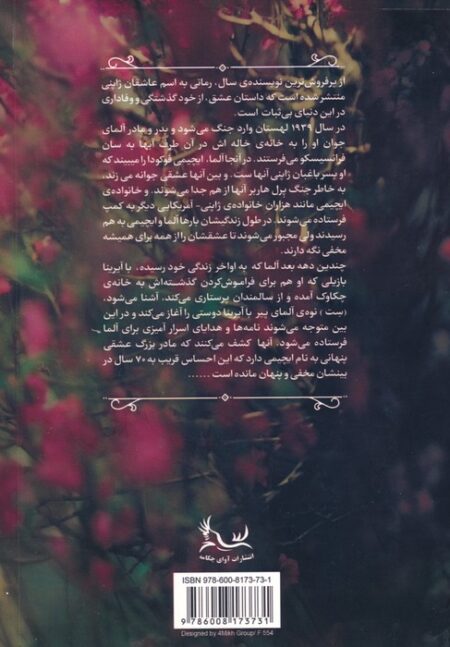 از پرفروش‌ترین نویسنده‌ی سال، رمانی به اسم عاشقان ژاپنی
منتشر شده است که داستان عشق، از خود گذشتگی و وفاداری
در این دنیای بی‌ثبات است.
در سال ۱۹۳۹ لهستان وارد جنگ می‌شود و پدر و مادر آلمای
جوان او را به خانه‌ی خاله اش در آن طرف آبها به سان
فرانسیسکو می‌فرستند. در آنجا آلما، ایچیمی فوکودا را میبیند که
او پسر باغبان ژاپنی آنها است. و بین آنها عشقی جوانه می زند،
به خاطر جنگ پرل هاربر آنها از هم جدا می‌شوند. و خانواده‌ی
ایچیمی مانند هزاران خانواده‌ی ژاپنی- آمریکایی دیگر به کمپ
فرستاده می‌شوند. در طول زندگیشان بارها آلما و ایچیمی به هم
رسیدند ولی مجبور می‌شوند تا عشقشان را از همه برای همیشه
مخفی نگه دارند.
چندین دهه بعد آلما که به اواخر زندگی خود رسیده، با آیرینا
بازیلی که او هم برای فراموش‌کردن گذشته‌اش به خانه‌ی
چکاوک آمده و از سالمندان پرستاری می‌کند، آشنا می‌شود.
(ست) نوه‌ی آلمای پیر با آیرینا دوستی را آغاز می‌کند و در این
بین متوجه می‌شوند نامه‌ها و هدایای اسرار آمیزی برای آلما
فرستاده می‌شود. آنها کشف می‌کنند که مادر بزرگ عشقی
پنهانی به نام ایچیمی دارد که این احساس قریب به ۷۰ سال در
بینشان مخفی و پنهان مانده است ......
انتشارات آوای چکامه
ISBN 978-600-8173-73-1
9 786008 173731
Designed by 4Mikh Group/ F 554